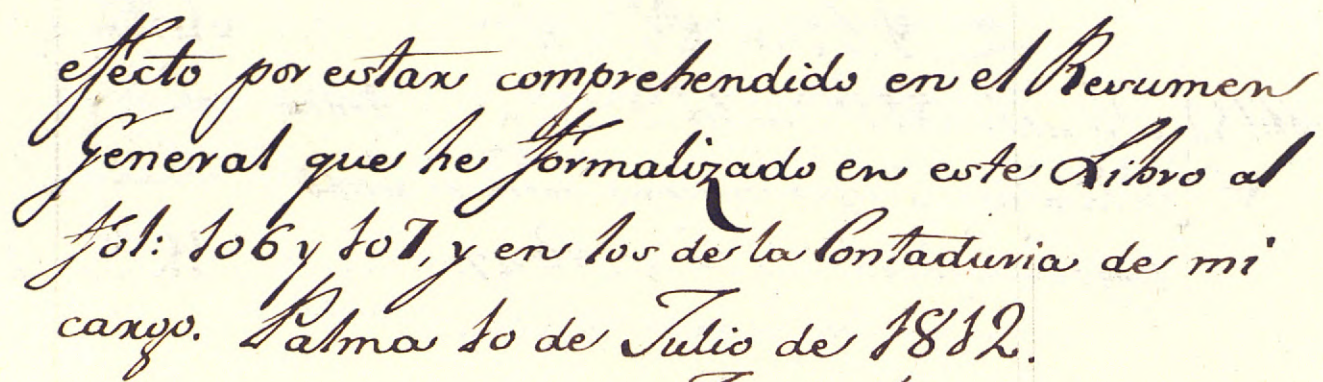 efecto por estar comprehendido en el Resumen
General que he formalizado en este Libro al
fol: 106 y 107, y en los de la Contaduria de mi
cargo. Palma 10 de Julio de 1812.